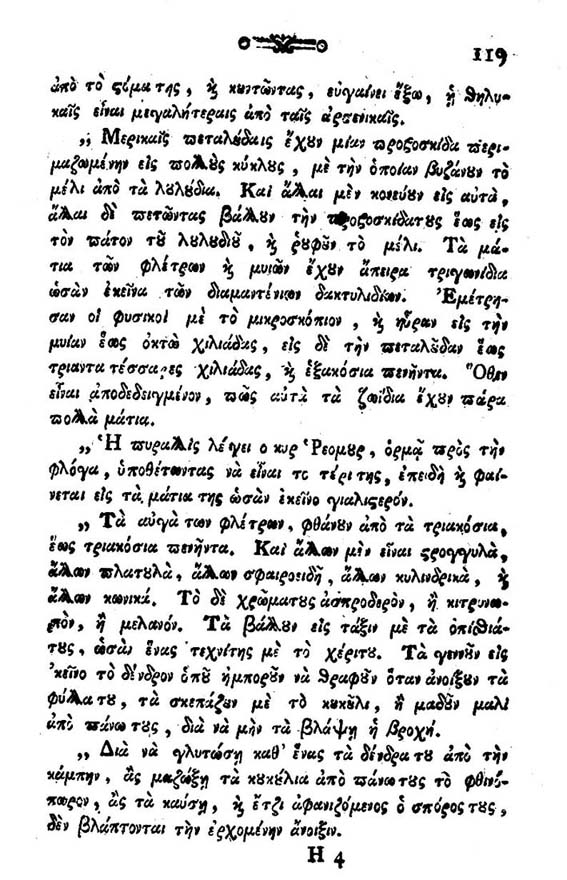 119
ἀπὸ τὸ ϛόμα της, ϗ κοιτῶντας, εὐγαίνει ἔξω, ἡ θηλυ-
καῖς εἶναι μεγαλήτεραις ἀπὸ ταῖς ἀρσενικαῖς.
„ Μερικαῖς πεταλȣ́δαις ἔχȣν μίαν προβοσκίδα περι-
μαζωμένην εἰς πολλȣ̀ς κύκλȣς, μὲ τὴν ὁποίαν βυζάνȣν τὸ
μέλι ἀπὸ τὰ λȣλȣ́δια. Καὶ ἄλλαι μὲν κονεύȣν εἰς αὐτὰ,
ἄλλαι δὲ πετῶντας βάλλȣν τὴν προβοσκίδατȣς ἕως εἰς
τὸν πάτον τȣ͂ λȣλȣδιȣ͂, ϗ ῥȣφȣ͂ν τὸ μέλι. Τὰ μά-
τια τῶν φλέτρων ϗ μυιῶν ἔχȣν ἄπειρα τριγωνίδια
ὡσὰν ἐκεῖνα τῶν διαμαντένιων δακτυλιδίων. Ἐμέτρη-
σαν οἱ φυσικοὶ μὲ τὸ μικροσκόπιον, ϗ ηὗραν εἰς τὴν
μυίαν ἕως ὀκτὼ χιλιάδας, εἰς δὲ τὴν πεταλȣ́δαν ἕως
τριαντατέσσαρες χιλιάδας, ϗ ἑξακόσια πενῆντα. Ὅθεν
εἶναι ἀποδεδειγμένον, πῶς αὐτὰ τὰ ζωΐδια ἔχȣν πάρα
πολλὰ μάτια.
„ Ἡ πυραλλὶς λέγει ο κυρ Ῥεομȣρ, ὁρμᾷ πρὸς τὴν
φλόγα, ὑποθέτωντας νὰ εἶναι το τέρι της, ἐπειδὴ ϗ φαί-
νεται εἰς τὰ μάτια της ὡσὰν ἐκεῖνο γιαλιϛερόν.
„ Τὰ αὐγὰ των φλέτρων, φθάνȣν ἀπὸ τὰ τριακόσια,
ἕως τριακόσια πενῆντα. Καὶ ἄλλων μὲν εἶναι ϛρογγυλὰ,
ἄλλων πλατυλὰ, ἄλλων σφαιροειδῆ, ἄλλων κυλινδρικὰ, ϗ
ἄλλων κωνικά. Τὸ δὲ χρῶματȣς ἀσπροδερὸν, ἢ κιτρινω-
πὸν, ἢ μελανόν. Τὰ βάλλȣν εἰς τάξιν μὲ τὰ ὀπίθιά-
τȣς, ὡσὰν ἕνας τεχνίτης μὲ τὸ χέριτȣ. Τὰ γεννȣ͂ν εἰς
᾿κεῖνο τὸ δένδρον ὁπȣ͂ ἠμπορȣ͂ν νὰ θραφȣ͂ν ὅταν ἀνοίξȣν τὰ
φύλλατȣ, τὰ σκεπάζȣν μὲ τὸ κȣκȣ́λι, ἢ μαδȣ͂ν μαλὶ
ἀπὸ πάνω τȣς, διὰ νὰ μὴν τὰ βλάψῃ ἡ βροχή.
„ Διὰ νὰ γλυτώσῃ καθ᾿ ἕνας τὰ δένδρα τȣ ἀπὸ τὴν
κάμπην, ἂς μαζώξῃ τὰ κȣκȣ́λια ἀπὸ πάνω τȣς τὸ φθινό-
πωρον, ἂς τὰ καύσῃ, ϗ ἔτζι ἀφανιζόμενος ὁ σπόρος τȣς,
δὲν βλάπτονται τὴν ἐρχομένην ἄνοιξιν.
Η 4